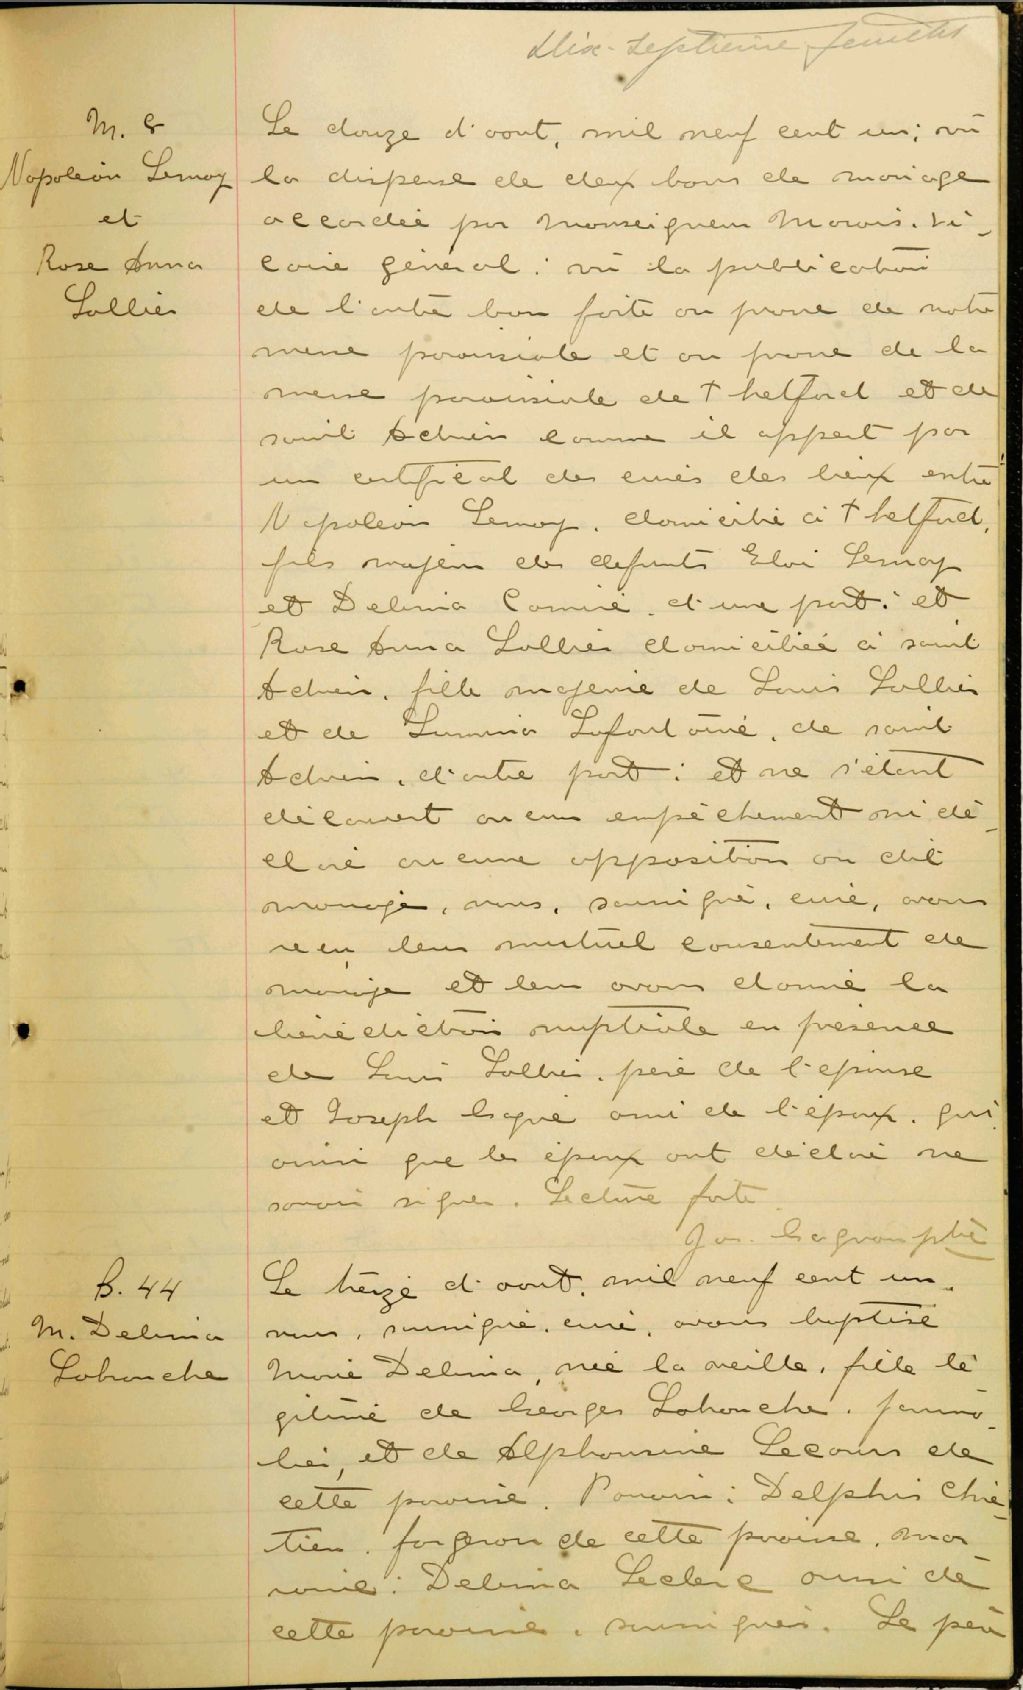 Dix-septième feuillet
M. 8
Napoléon Lemay
et
Rose Anna
Lallier
Le douze d'août, mil neuf cent un; vû
la dispense de deux bans de mariage
accordée par Monseigneur Marois, vi-
caire général; vû la publication
de l'autre ban faite au prône de notre
messe paroissiale et au prône de la
messe paroissiale de Thetford et de
saint Adrien comme il appert par
un certificat des curés des lieux entre
Napoléon Lemay, domicilié à Thetford,
fils majeur des défunts Eloi Lemay
et Delima Comiré, d'une part; et
Rose Anna Lallier domiciliée à saint
Adrien, fille majeure de Louis Lallier
et de Lumina Lafontaine, de saint
Adrien, d'autre part; et ne s'étant
découvert aucun empêchement ni dé-
claré aucune opposition au dit
mariage, nous, soussigné, curé, avons
reçu leur mutuel consentement de
mariage et leur avons donné la
bénédiction nuptiale en présence
de Louis Lallier, père de l'épouse
et Joseph Gagné ami de l'époux, qui
ainsi que les époux ont déclaré ne
savoir signer. Lecture faite.
Jos. Gagnon ptre
B. 44
M. Delima
Labranche
Le treize d'août, mil neuf cent un,
nous, soussigné, curé, avons baptisé
Marie Delima, née la veille, fille lé
gitime de Georges Labranche, journa-
lier, et de Alphonsine Lecours de
cette paroisse. Parrain: Delphis Chré-
tien, forgeron de cette paroisse, mar
raine: Delima Leclerc aussi de
cette paroisse, soussignés. Le père